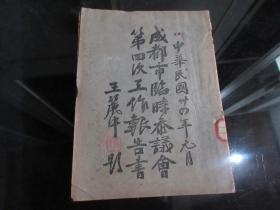 中華民國卅四年元月
成都市臨時參議會
第四次工作報告書
王麗生題